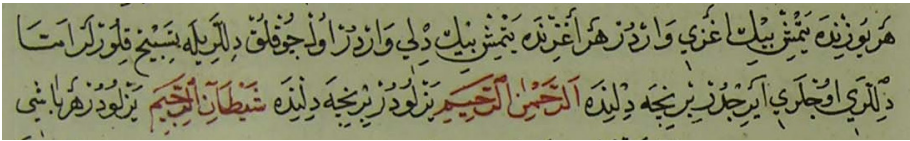 هَر يُوزِنْدَه يَتْمِشْ بِيْكْ اَغْزِي وَارْدُرْ هَر اَغْزِنْدَه يَتْمِشْ بِيْكْ دِلِي وَارْدُرْ اُولْ جُوقْلُقْ دِلْلَرِيلَه تَسْبِيحْ قِلُورْلَرْ اَمَّا
دِلْلَرِي اُوجْلَرِي اَيْرِجْدُرْ بِرْنِيجَه دِلِنْدَه اَلرَّحْمٰنِ الرَّحِيمِ يَزْلُودُرْ بِرْنِيجَه دِلِنْدَه شَيْطَانِ الرَّجِيمِ يَزْلُودُرْ هَر بَاشِي